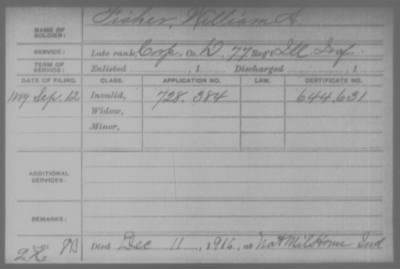 NAME OF SOLDIER: Fisher, William A.
SERVICE: Late rank, Corp. Co. D, 77 Reg't Ill Inf.
TERM OF SERVICE: Enlisted , 1 Discharged , 1
DATE OF FILING. CLASS. APPLICATION NO. LAW. CERTIFICATE NO.
1889 Sep. 12 Invalid, 728.384 644.631
Widow,
Minor,
ADDITIONAL SERVICES:
REMARKS:
Died Dec 11, 1916, at Nat Mil Home Ind